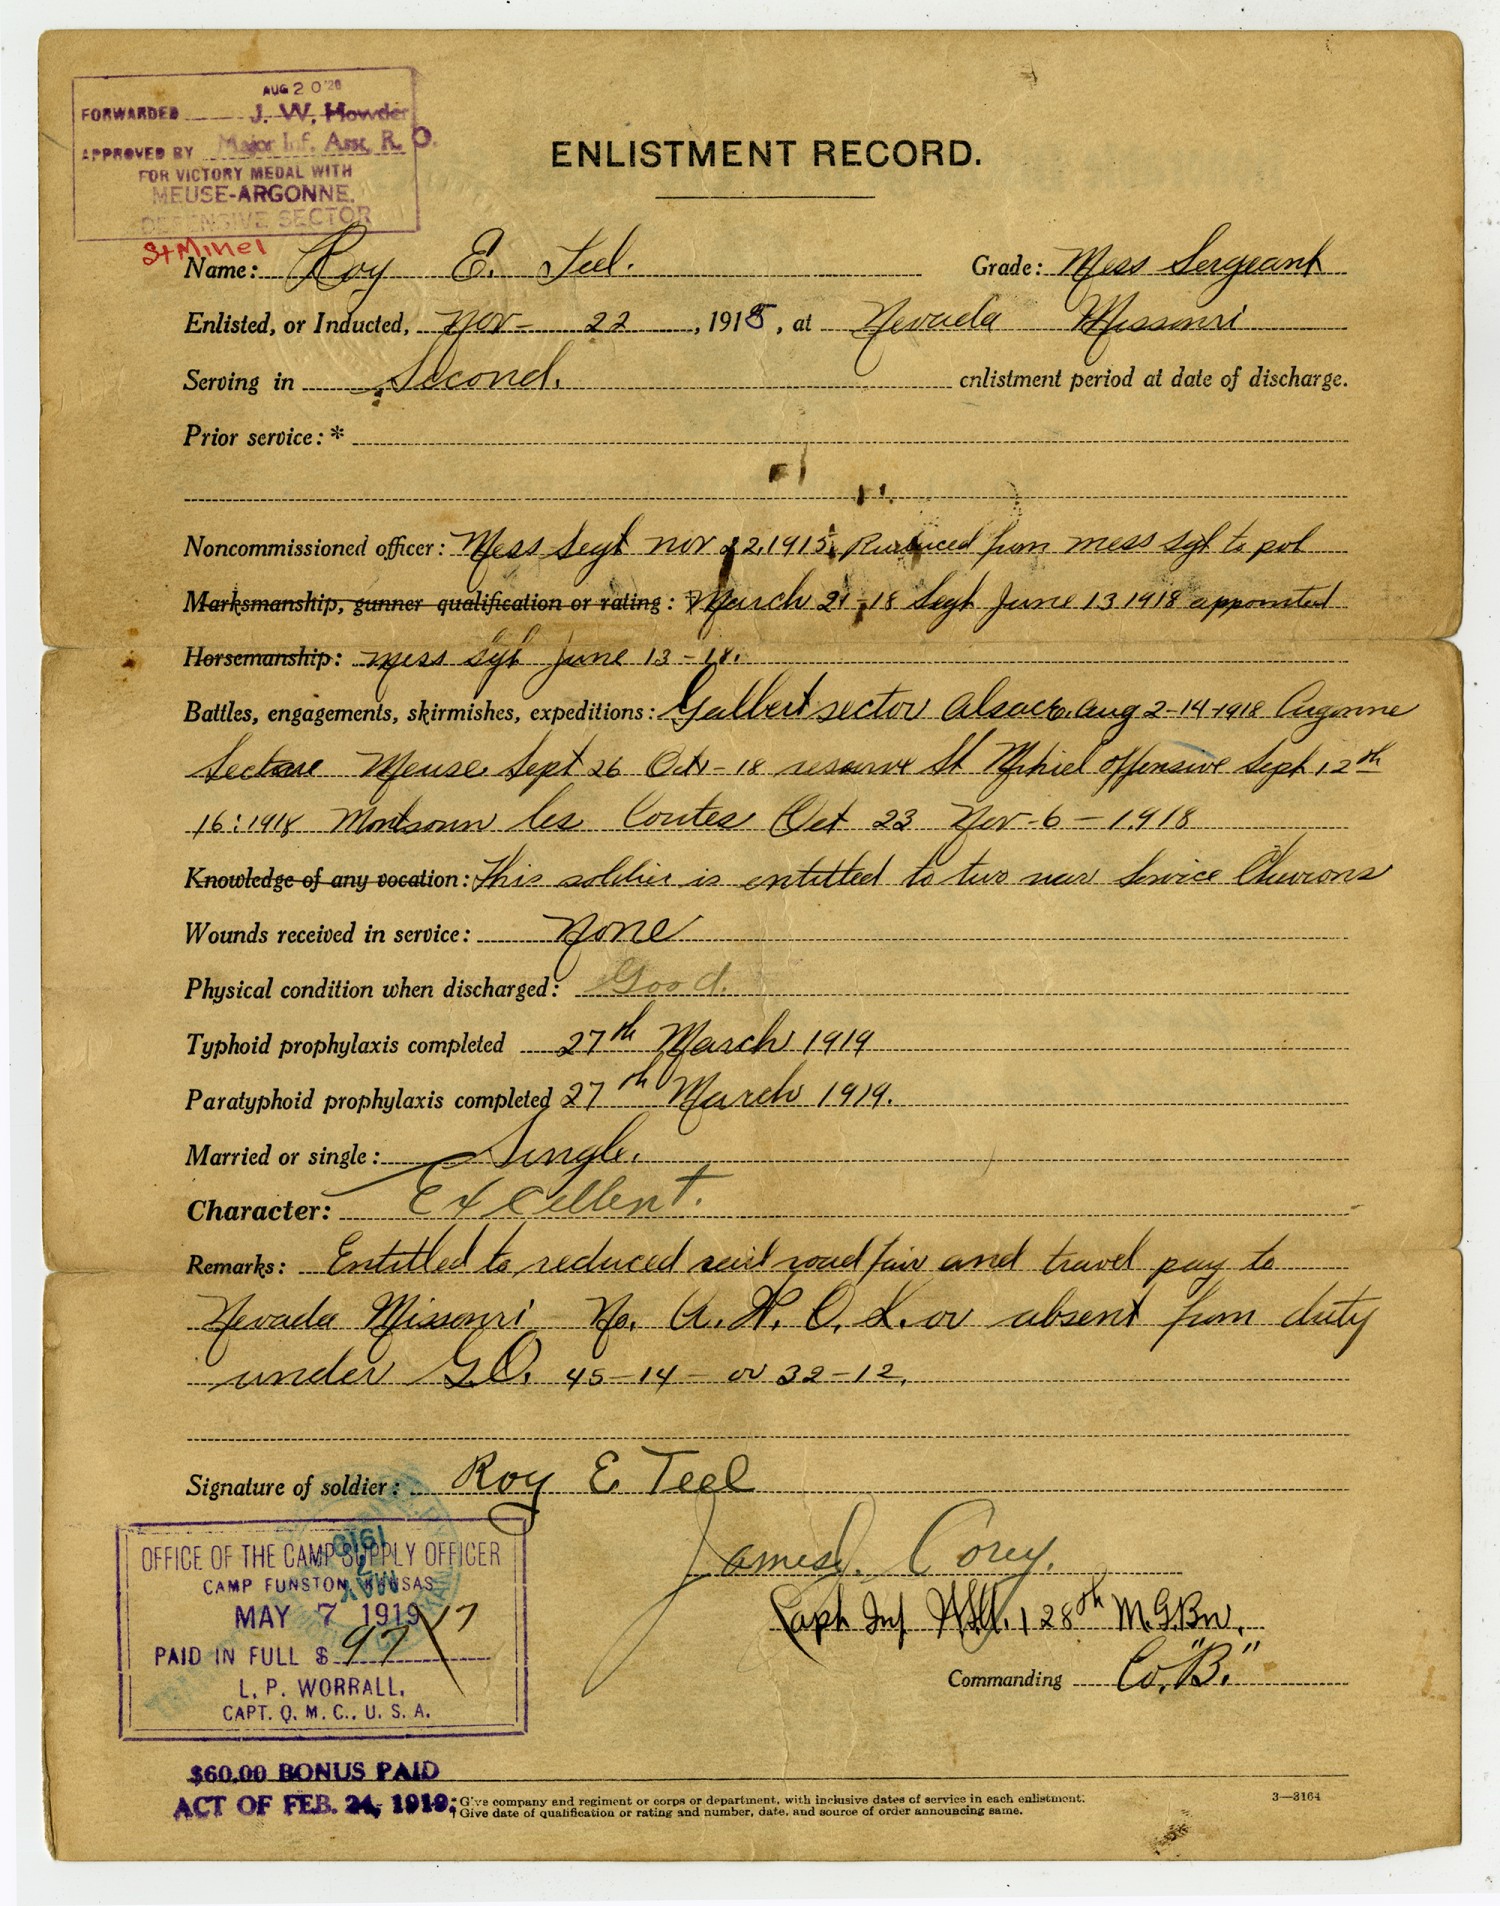 AUG 20 '20
FORWARDED J. W. Howder
APPROVED BY Major Inf. Asst, R. O.
FOR VICTORY MEDAL WITH
MEUSE-ARGONNE.
DEFENSIVE SECTOR
St Mihel
ENLISTMENT RECORD.
Name: Roy E. Teel. Grade: Mess Sergeant
Enlisted, or Inducted, Nov- 22, 1915, at Nevada Missouri
Serving in Second. enlistment period at date of discharge.
Prior service:*
Noncommissioned officer: Mess Segt Nov 22, 1915; Reduced from mess sgt to pvt
Marksmanship, gunner qualification or rating: March 21-18 Segt June 13 1918 appointed
Horsemanship: mess sgt June 13-18.
Battles, engagements, skirmishes, expeditions: Galbert sector Alsace, Aug 2-14-1918 Argonne
Meuse Sept 26 Oct 1-18 reserve St Mihiel offensive Sept 12th
16:1918 les Coutes Oct 23 Nov-6-1918
Knowledge of any vocation: This soldier is entitled to two war Service Chevrons
Wounds received in service: None
Physical condition when discharged: Good.
Typhoid prophylaxis completed 27th March 1919
Paratyphoid prophylaxis completed 27th March 1919.
Married or single: Single.
Character: Excellent.
Remarks: Entitled to reduced rail road fair and travel pay to
Nevada Missouri No. A. W. O. L. or absent from duty
under G.O. 45-14- or 32-12.
Signature of soldier: Roy E Teel
James J. Corey.
Capt Inf U.S.A. 128th M.G.Bn.
Commanding Co. "B."
OFFICE OF THE CAMP SUPPLY OFFICER
CAMP FUNSTON, KANSAS
MAY 7 1919
PAID IN FULL $ 97 17
L. P. WORRALL,
CAPT. Q. M. C., U. S. A.
$60.00 BONUS PAID
ACT OF FEB. 24, 1919.
Give company and regiment or corps or department, with inclusive dates of service in each enlistment. 3—3164
Give date of qualification or rating and number, date, and source of order announcing same.